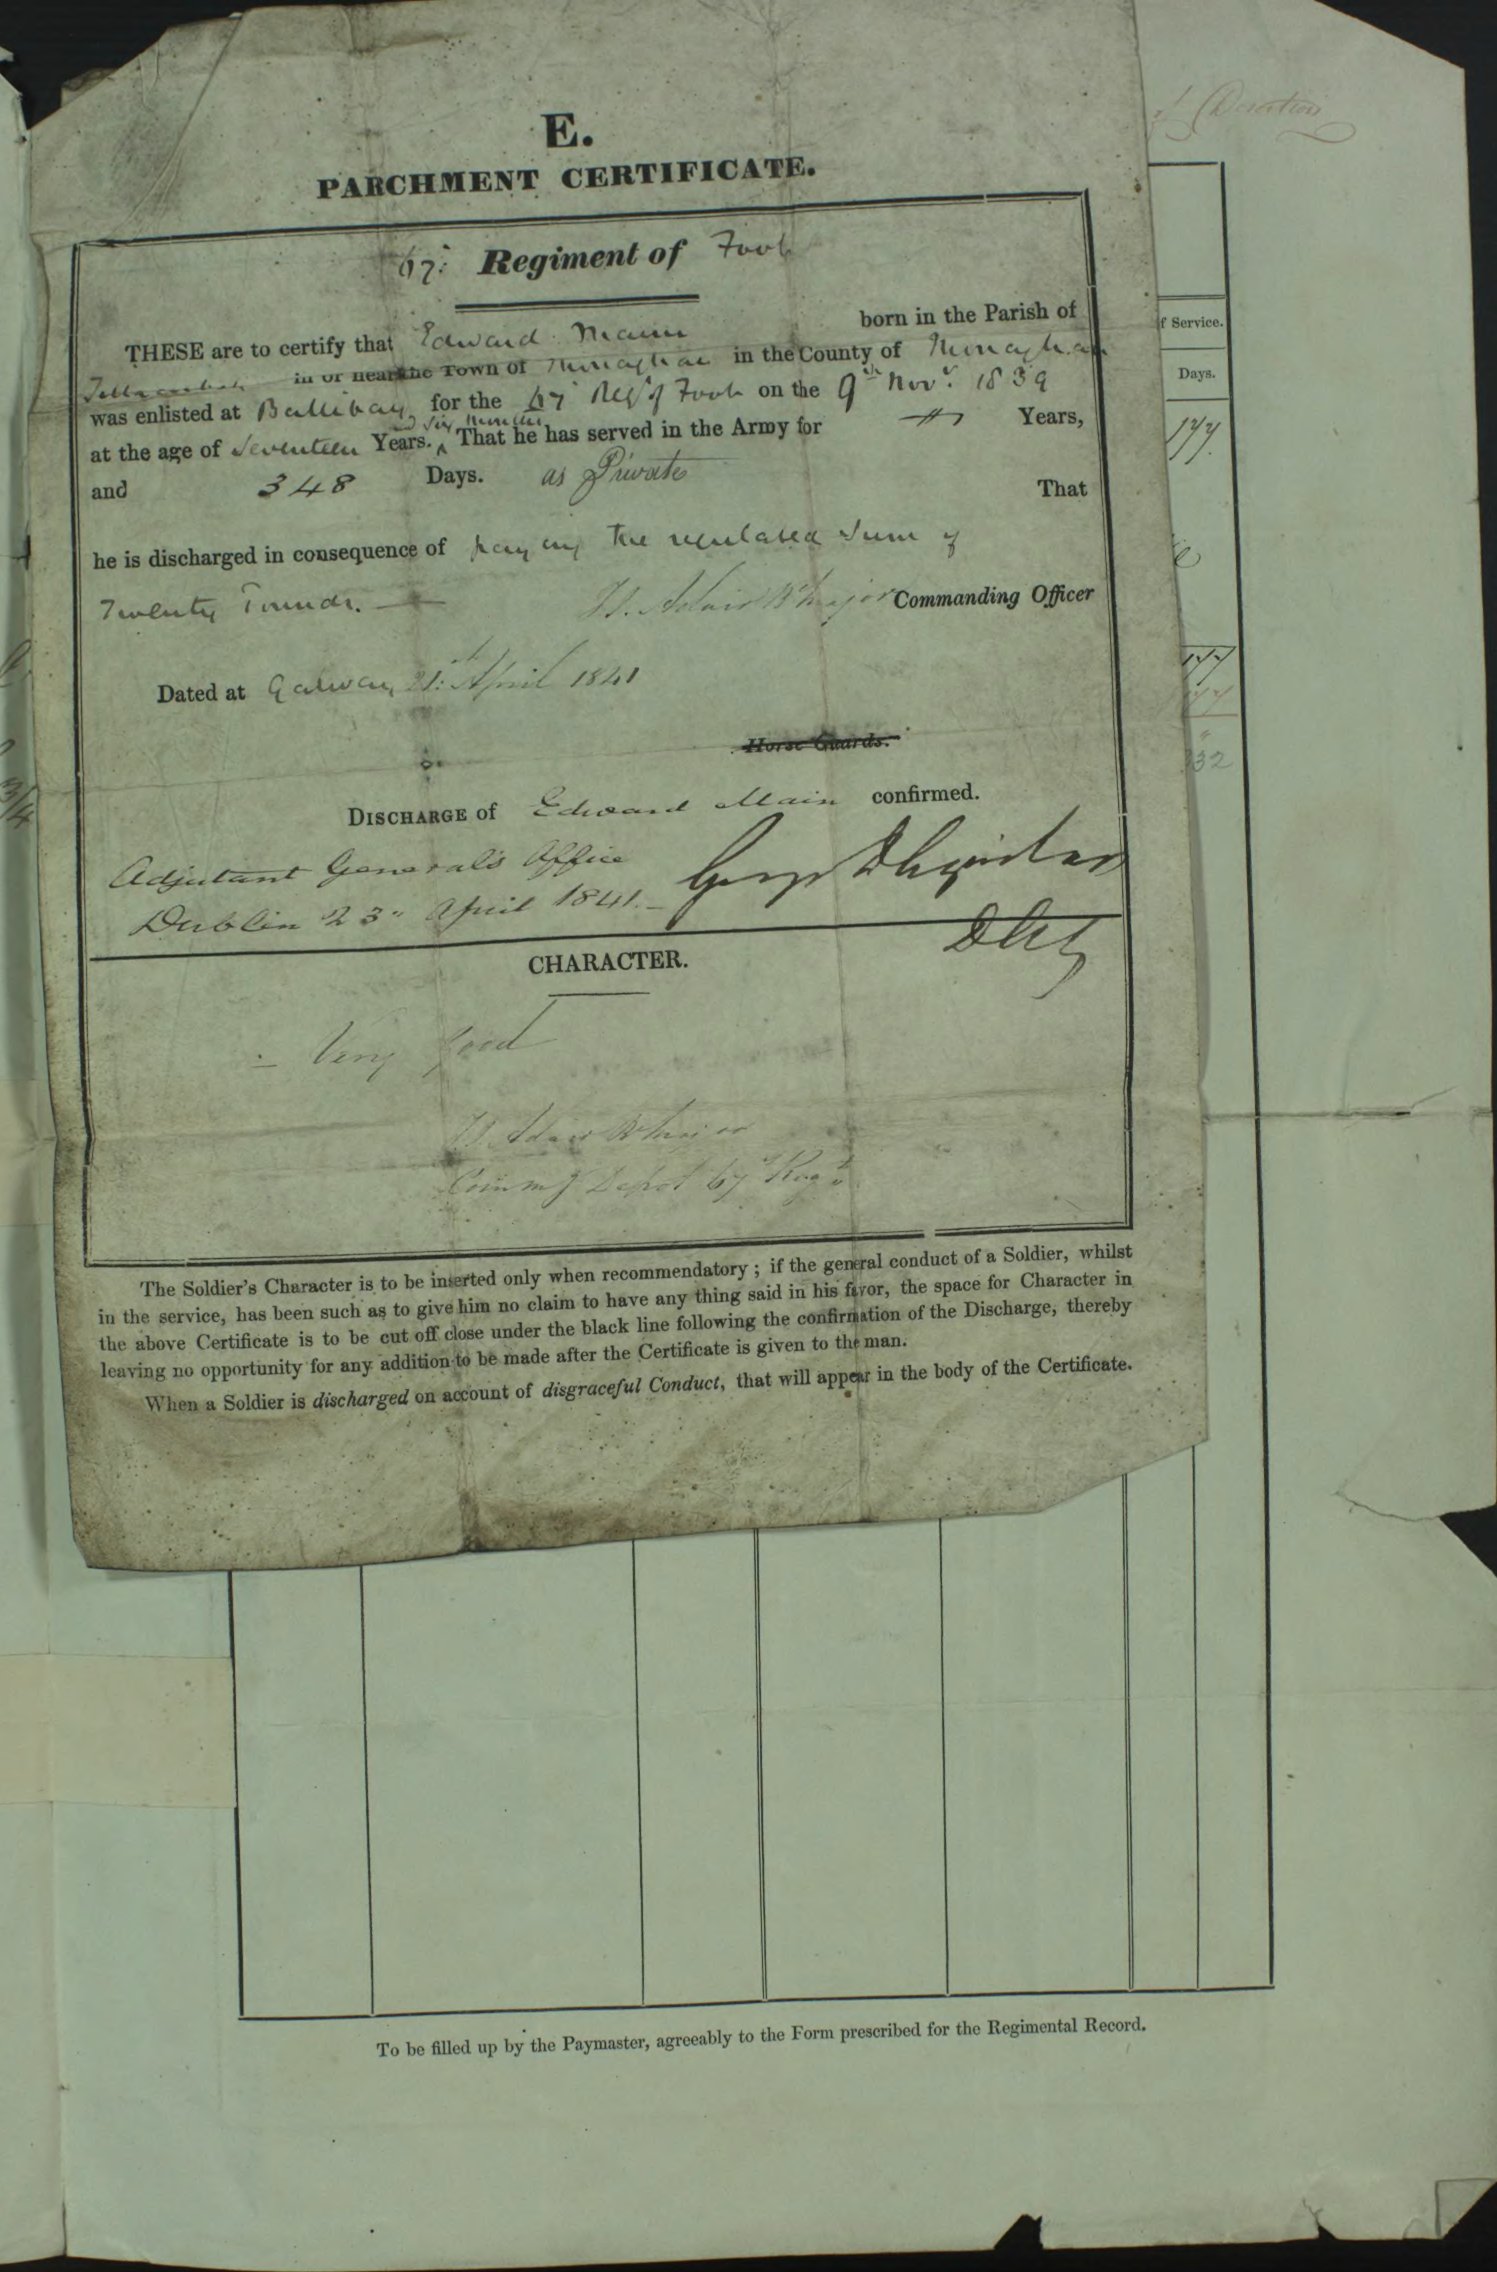 E.
PARCHMENT CERTIFICATE.
67: Regiment of Foot
THESE are to certify that Edward Mann born in the Parish of
in or near the Town of Monaghan in the County of Monaghan
was enlisted at Ballibay for the 67 Regt of Foot on the 9th Novr. 1839
and Six Months
at the age of Seventeen Years. ^ That he has served in the Army for Years,
and 348 Days. as Private That
he is discharged in consequence of paying the regulated Sum of
Twenty Pounds. Adair Bt Major Commanding Officer
Dated at Galway 21st April 1841
Horse Guards.
DISCHARGE of Edward Main confirmed.
Adjutant General's Office
Dublin 23" April 1841.
DAG
CHARACTER.
Very good
Adair Bt Major
Commg Depot 67 Regt
The Soldier's Character is to be inserted only when recommendatory; if the general conduct of a Soldier, whilst
in the service, has been such as to give him no claim to have any thing said in his favor, the space for Character in
the above Certificate is to be cut off close under the black line following the confirmation of the Discharge, thereby
leaving no opportunity for any addition to be made after the Certificate is given to the man.
When a Soldier is discharged on account of disgraceful Conduct, that will appear in the body of the Certificate.
Desertion
f Service.
Days.
177
177
177
332
3/4
To be filled up by the Paymaster, agreeably to the Form prescribed for the Regimental Record.